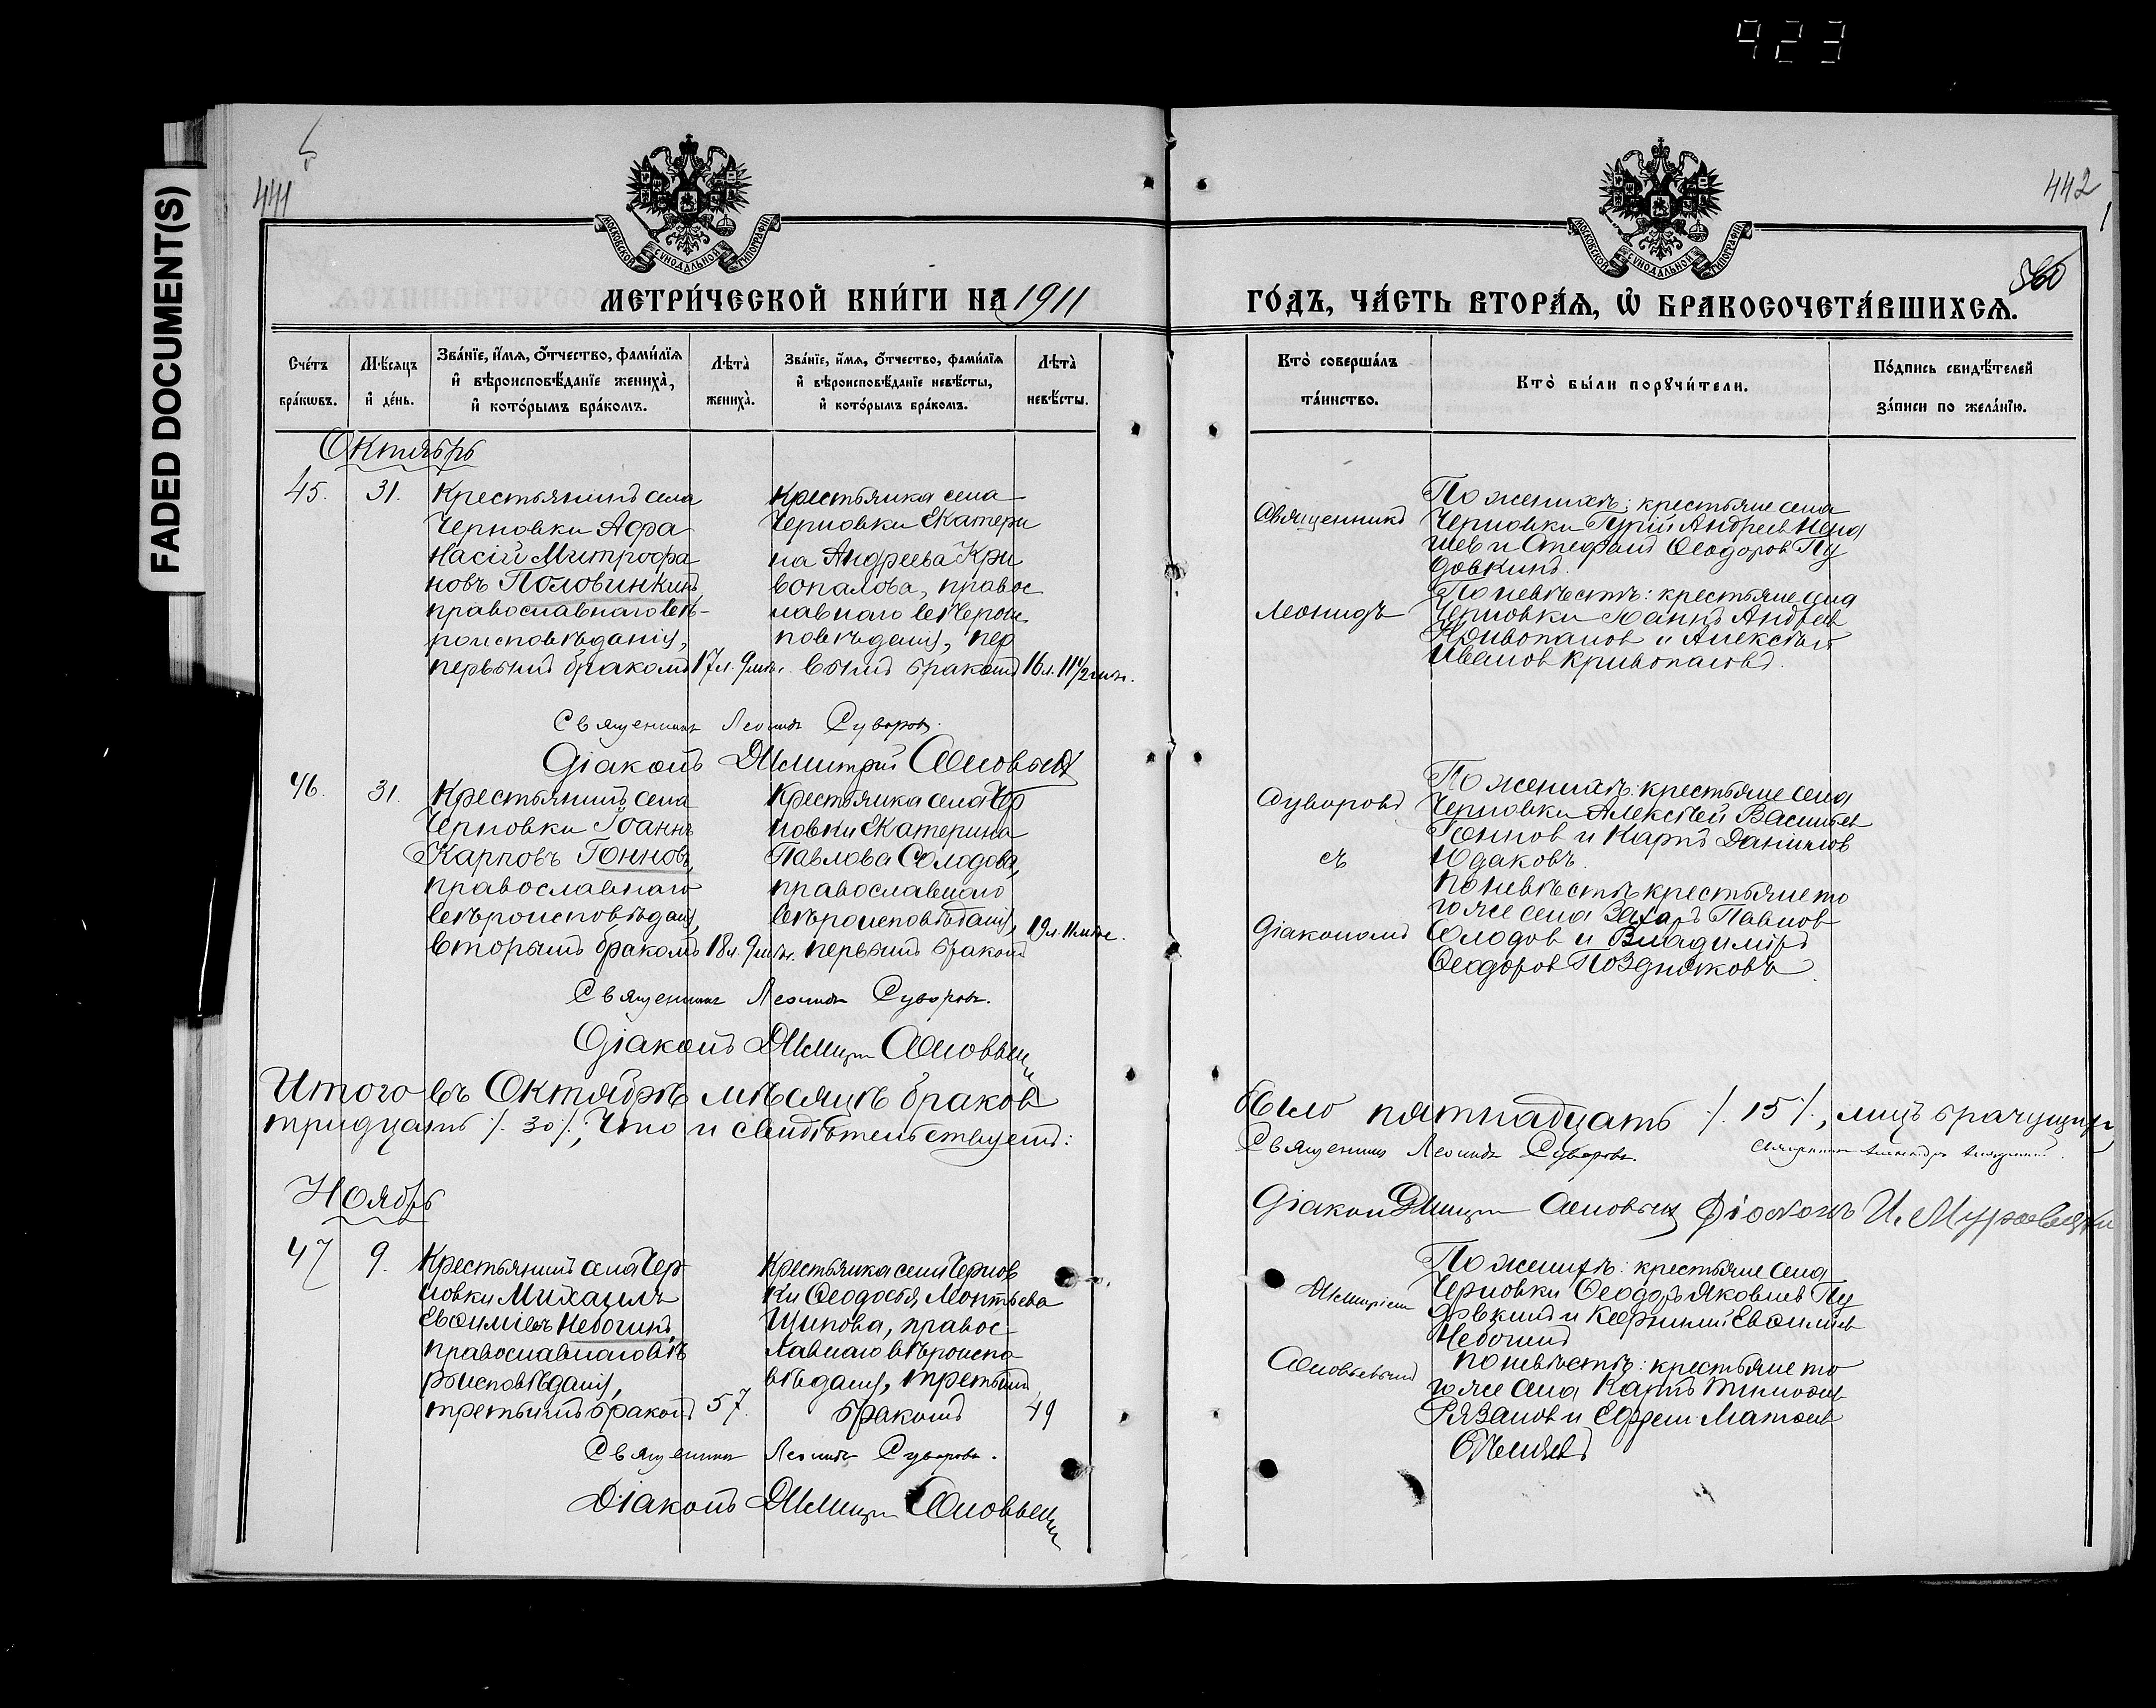 423
FADED DOCUMENT(S)
441
442
560
МОСКОВСКОЙ СѴНОДАЛЬНОЙ ТИПОГРАФІИ
МОСКОВСКОЙ СѴНОДАЛЬНОЙ ТИПОГРАФІИ
МЕТРИ́ЧЕСКОЙ КНИ́ГИ НА 1911
ГО́ДЪ, ЧА́СТЬ ВТОРА́Ѧ, Ѡ҆ БРАКОСОЧЕТА́ВШИХСѦ.
Сче́тъ бра́кѡвъ.
Мѣ́сяцъ и҆ де́нь.
Зва́нїе, и҆́мя, ѻ҆́тчество, фами́лїя и҆ вѣроисповѣ́данїе жениха̀, и҆ кото́рымъ бра́комъ.
Лѣ́та̀ жениха̀.
Зва́нїе, и҆́мя, ѻ҆́тчество, фами́лїя и҆ вѣроисповѣ́данїе невѣ́сты, и҆ кото́рымъ бра́комъ.
Лѣ́та̀ невѣ́сты.
Кто̀ соверша́лъ та́инство.
Кто̀ бы́ли порꙋчи́тели.
По́дпись свидѣ́телей за́писи по жела́нїю.
Октябрь
45. 31.
Крестьянинъ села
Черновки Афа
насій Митрофа
новъ Половинкинъ,
православнаго вѣ-
роисповѣданія,
первымъ бракомъ
17 л. 9 мѣс.
Крестьянка села
Черновки Екатери
на Андреева Кри
вопалова, правос
лавнаго вѣрои
повѣданія, пер
вымъ бракомъ
16 л. 11 1/2 мѣс.
Священникъ
Леонидъ
По женихѣ: крестьяне села
Черновки Гурій Андреев
и Стефанъ Ѳеодоров Пу
довкинъ.
По невѣстѣ: крестьяне села
Черновки Іоаннъ Андреев
Кривопалов и Алексѣй
Иванов Кривопаловъ.
Священникъ Леонидъ Суворовъ.
Діаконъ Димитрій Соловьевъ
46. 31.
Крестьянинъ села
Черновки Іоаннъ
Карповъ Гонновъ,
православнаго
вѣроисповѣданія,
вторымъ бракомъ
18 л. 9 мѣс.
Крестьянка села Чер
новки Екатерина
Павлова Солодова,
православнаго
вѣроисповѣданія,
первымъ бракомъ
19 л. 11 мѣс.
Суворовъ
съ
діакономъ
По женихѣ: крестьяне села
Черновки Алексѣй Васильев
Гоннов и Карпъ Данилов
Юдаковъ.
По невѣстѣ крестьяне то
го же села Захаръ Павлов
Солодов и Владиміръ
Ѳеодоров Поздняковъ.
Священникъ Леонидъ Суворовъ.
Діаконъ Димитрій Соловьевъ
Итого въ Октябрѣ мѣсяцѣ браковъ
было пятнадцать /. 15 /., лицъ брачущихся
тридцать /. 30 /.; Что и свидѣтельствуемъ:
Священникъ Леонидъ Суворовъ.
Діаконъ Димитрій Соловьевъ Діаконъ И.
Ноябрь
47 9.
Крестьянинъ села Чер
новки Михаилъ
Евѳиміевъ Небогинъ,
православнаго вѣ
роисповѣданія,
третьимъ бракомъ
57.
Крестьянка села Чернов
ки Ѳеодосья Монтьева
Щипова, правос
лавнаго вѣроиспо
вѣданія, третьимъ
бракомъ
49
Димитріемъ
Соловьевымъ
По женихѣ: крестьяне села
Черновки Ѳеодоръ Яковлев
и Евѳиміев
Небогинъ
По невѣстѣ: крестьяне то
го же села Карпъ Тимоѳеев
Рязанов и Ефрем Матѳеев
Священникъ Леонидъ Суворовъ.
Діаконъ Димитрій Соловьевъ